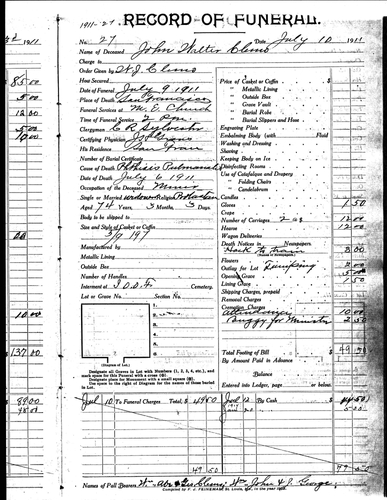 1911-27. RECORD OF FUNERAL.
No. 27 Date July 10 1911
Name of Deceased John Walter Clems
Charge to
Order Given by W J Clems
How Secured
Date of Funeral July 9 1911
Place of Death San Francisco
Funeral Services at M. E. Church
Time of Funeral Service 2 P.m.
Clergyman C R Sylvester
Certifying Physician
His Residence San Fran
Number of Burial Certificate
Cause of Death Pthisis Pulmonalis
Date of Death July 6 1911
Occupation of the Deceased Miner
Single or Married widower Religion Protestan
Aged 74 Years, 3 Months, 3 Days.
Body to be shipped to
Size and Style of Casket or Coffin
3/9 197
Manufactured by
Metallic Lining
Outside Box
Number of Handles
Interment at I.O.O.F. Cemetery.
Lot or Grave No. Section No.
(Diagram of Lot.)
1.
2.
3.
4.
Designate all Graves in Lot with Numbers (1, 2, 3, 4, etc.), and
mark space for this Funeral with a cross
Designate place for Monument with a small square
Use space to the right of Diagram for the names of those buried
in Lot.
Price of Casket or Coffin
" Metallic Lining
" Outside Box
" Grave Vault
" Burial Robe
" Burial Slippers and Hose
Engraving Plate
Embalming Body (with Fluid
Washing and Dressing
Shaving
Keeping Body on Ice
Disinfecting Rooms
Use of Catafalque and Drapery
" Folding Chairs
" Candelabrum
Candles
Gloves 1.50
Crape
Number of Carriages 2 @ 6 12.00
Hearse 12.00
Wagon Deliveries
Death Notices in Newspapers.
Hack to train 3.00
(Names of Newspapers)
Flowers
Outlay for Lot
Opening Grave 5.00
Lining Grave 1.50
Shipping Charges, prepaid
Removal Charges
Cremation Charges
Attendance 10.00
Buggy for Minister 2.50
Total Footing of Bill 49.50
By Amount Paid in Advance
Balance
Entered into Ledger, page or below.
Jul 10 To Funeral Charges Total $ 49.50
Jul 12 By Cash 44.50
Jan 20 5.00
49.50
49.50
Names of Pall Bearers
Compiled by F. J. FEINEMAN, St. Louis, Mo.
85.00
5.00
12.00
5.00
10.00
10.00
137.00